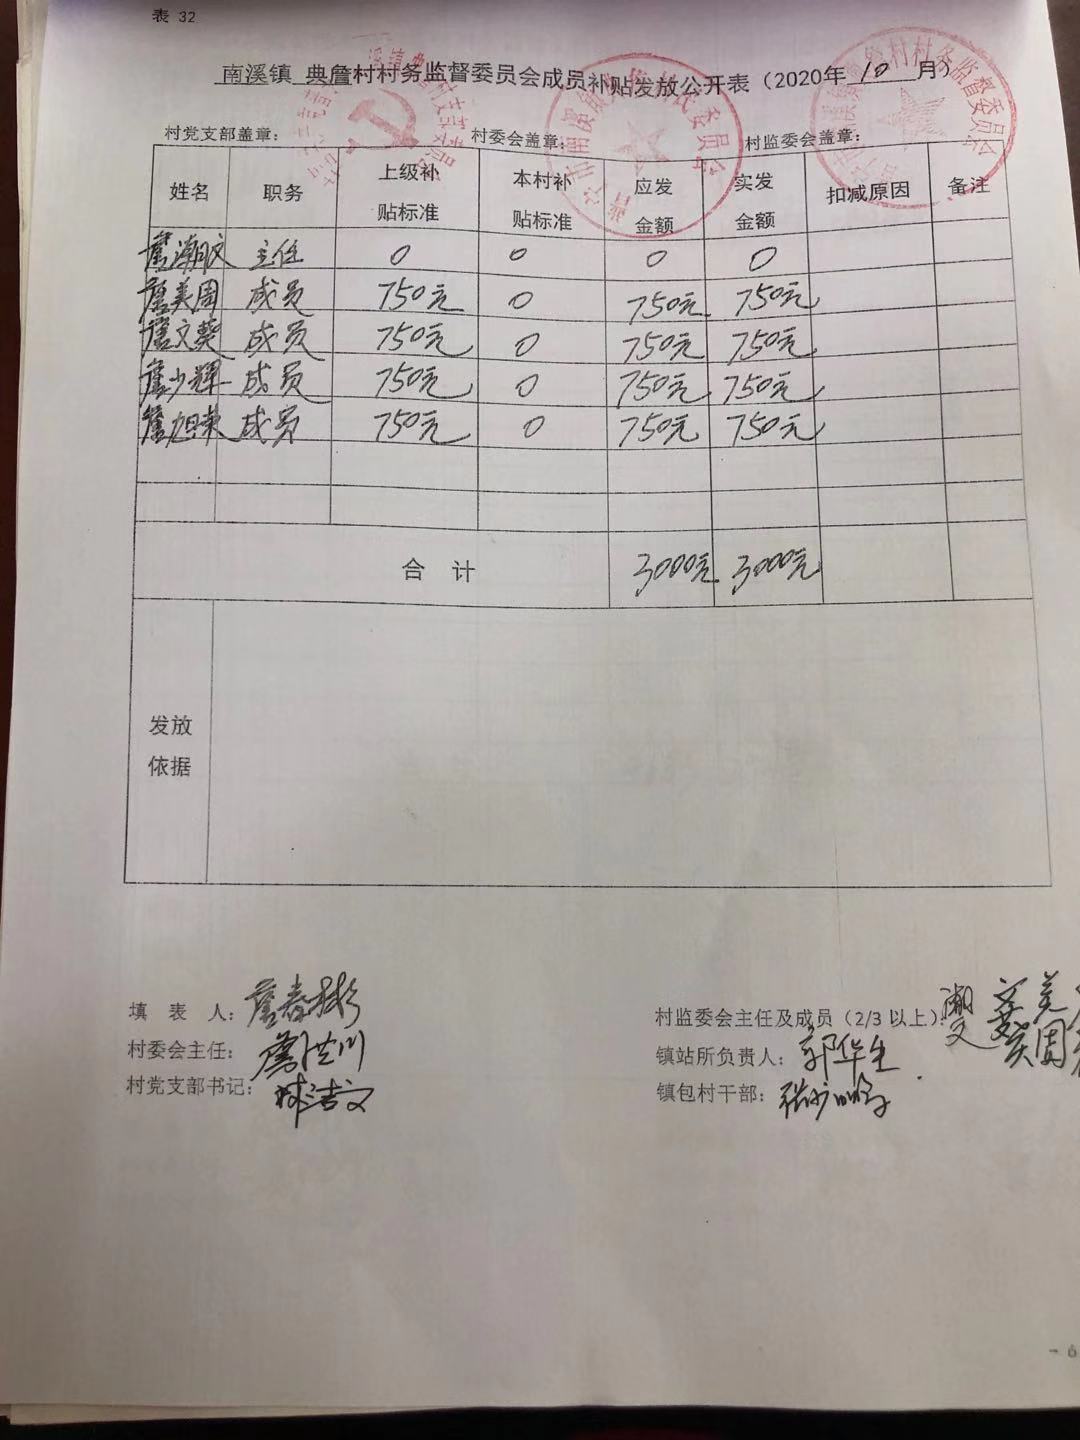 表 32
南溪镇 典詹村村务监督委员会成员补贴发放公开表（2020年 10 月）
村党支部盖章： 村委会盖章： 村监委会盖章：
姓名 职务 上级补贴标准 本村补贴标准 应发金额 实发金额 扣减原因 备注
詹潮文 主任 0 0 0 0
詹美周 成员 750元 0 750元 750元
詹文葵 成员 750元 0 750元 750元
詹少辉 成员 750元 0 750元 750元
詹旭荣 成员 750元 0 750元 750元
合 计 3000元 3000元
发放
依据
填 表 人：詹春彬 村监委会主任及成员（2/3 以上）： 潮文 文葵 美周
村委会主任：詹洪川 镇站所负责人：郭华生
村党支部书记：林洁文 镇包村干部：
- 6